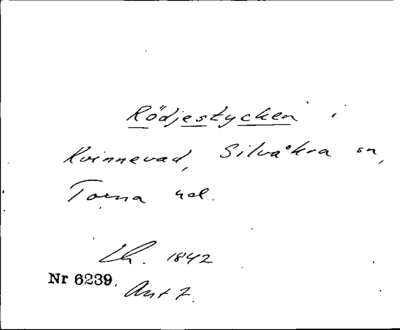 Rödjestycken i
Kvinnevad, Silvåkra sn,
Torna hd.
Lh. 1842
Nr 6239.
Ant 7.